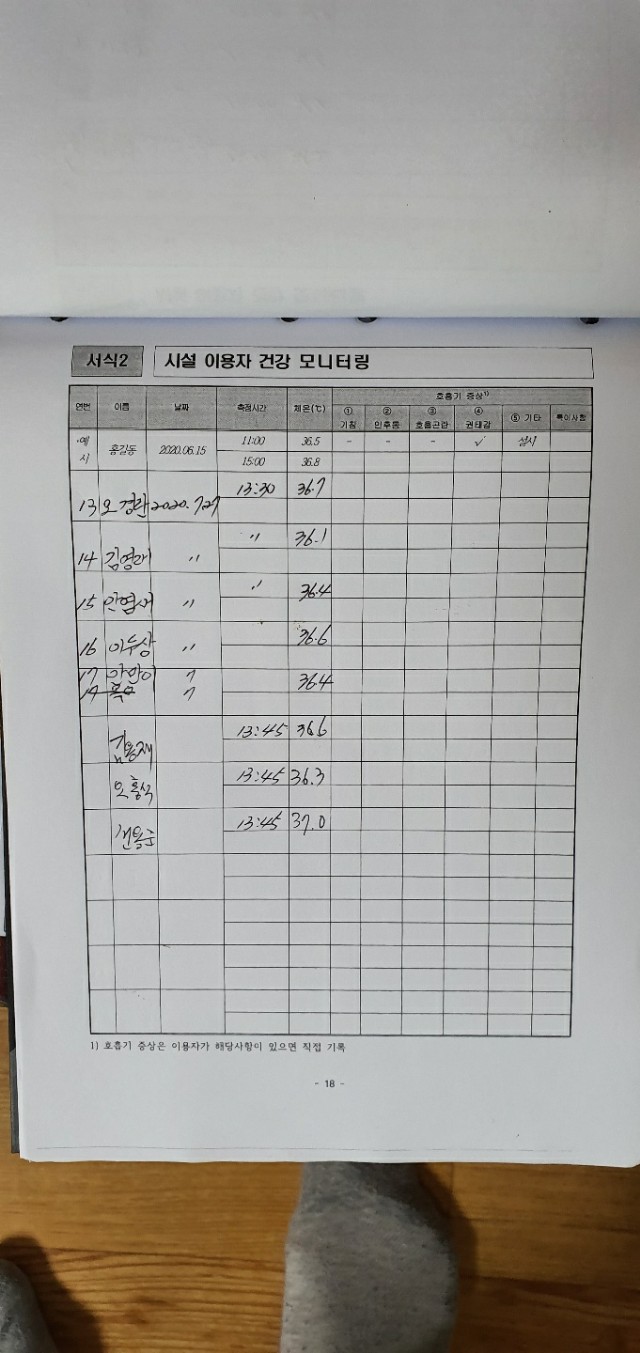 서식2 시설 이용자 건강 모니터링
연번 이름 날짜 측정시간 체온(℃) 호흡기 증상1)
① 기침 ② 인후통 ③ 호흡곤란 ④ 권태감 ⑤ 기타 특이사항
예시 홍길동 2020.06.15 11:00 36.5 - - - ✓ 설사
15:00 36.8
13 오경란 2020.7.27 13:30 36.7
14 김영래 〃 〃 36.1
15 〃 〃 36.4
16 이두상 〃 36.6
17 〃 36.4
〃
김용재 13:45 36.6
오홍식 13:45 36.3
13:45 37.0
1) 호흡기 증상은 이용자가 해당사항이 있으면 직접 기록
- 18 -